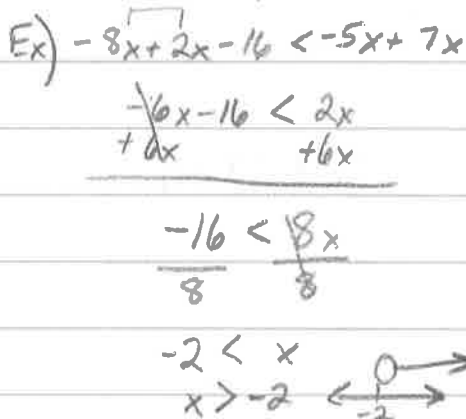 Ex) -8x + 2x - 16 < -5x + 7x
-6x - 16 < 2x
+6x +6x
-16 < 8x
8 8
-2 < x
x > -2
-2